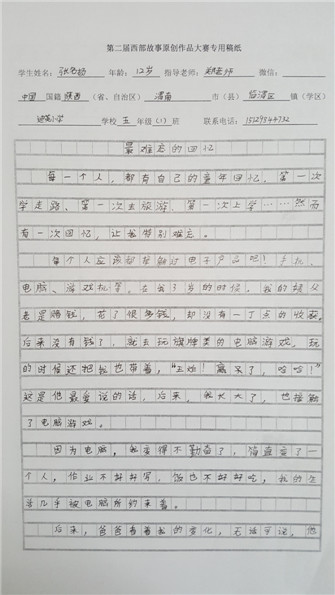 第二届西部故事原创作品大赛专用稿纸
学生姓名： 张名扬 年龄： 12岁 指导老师： 微信：
中国 国籍 陕西 （省、自治区） 渭南 市（县） 临渭区 镇（学区）
小学 学校 五 年级（1）班 联系电话：
最难忘的回忆
每一个人，都有自己的童年回忆，第一次
学走路、第一次去旅游、第一次上学……然而
有一次回忆，让我特别难忘。
每个人应该都接触过电子产品吧！手机、
电脑、游戏机等。在我3岁的时候，我的叔父
老是赌钱，花了很多钱，却没有一丁点的收获。
后来没有钱了，就去玩旗牌类的电脑游戏。玩
的时候还把我也带着，“王炸！赢不了，哈哈！”
这是他最爱说的话，后来，我长大了，也接触
了电脑游戏。
因为电脑，我变得不勤奋了，简直变了一
个人，作业不好好写，饭也不好好吃，我的生
活几乎被电脑所约束着。
后来，爸爸看着我的变化，无话可说，他